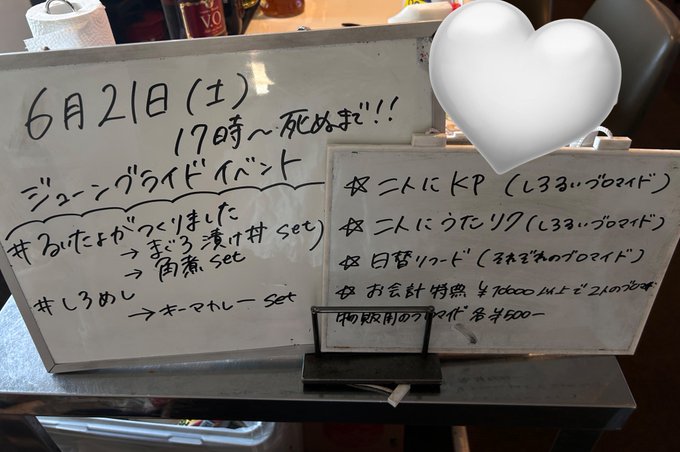 V.O
6月21日(土)
17時〜死ぬまで!!
ジューンブライドイベント
#るいたよがつくりました
→まぐろ漬け丼set
→角煮set
#しろめし
→キーマカレーset
☆二人にKP(しろるいブロマイド)
☆二人にうたリク(しろるいブロマイド)
☆日替りフード(それぞれのブロマイド)
☆お会計特典¥10000以上で2人のブロマイド
物販用のブロマイド各¥500-